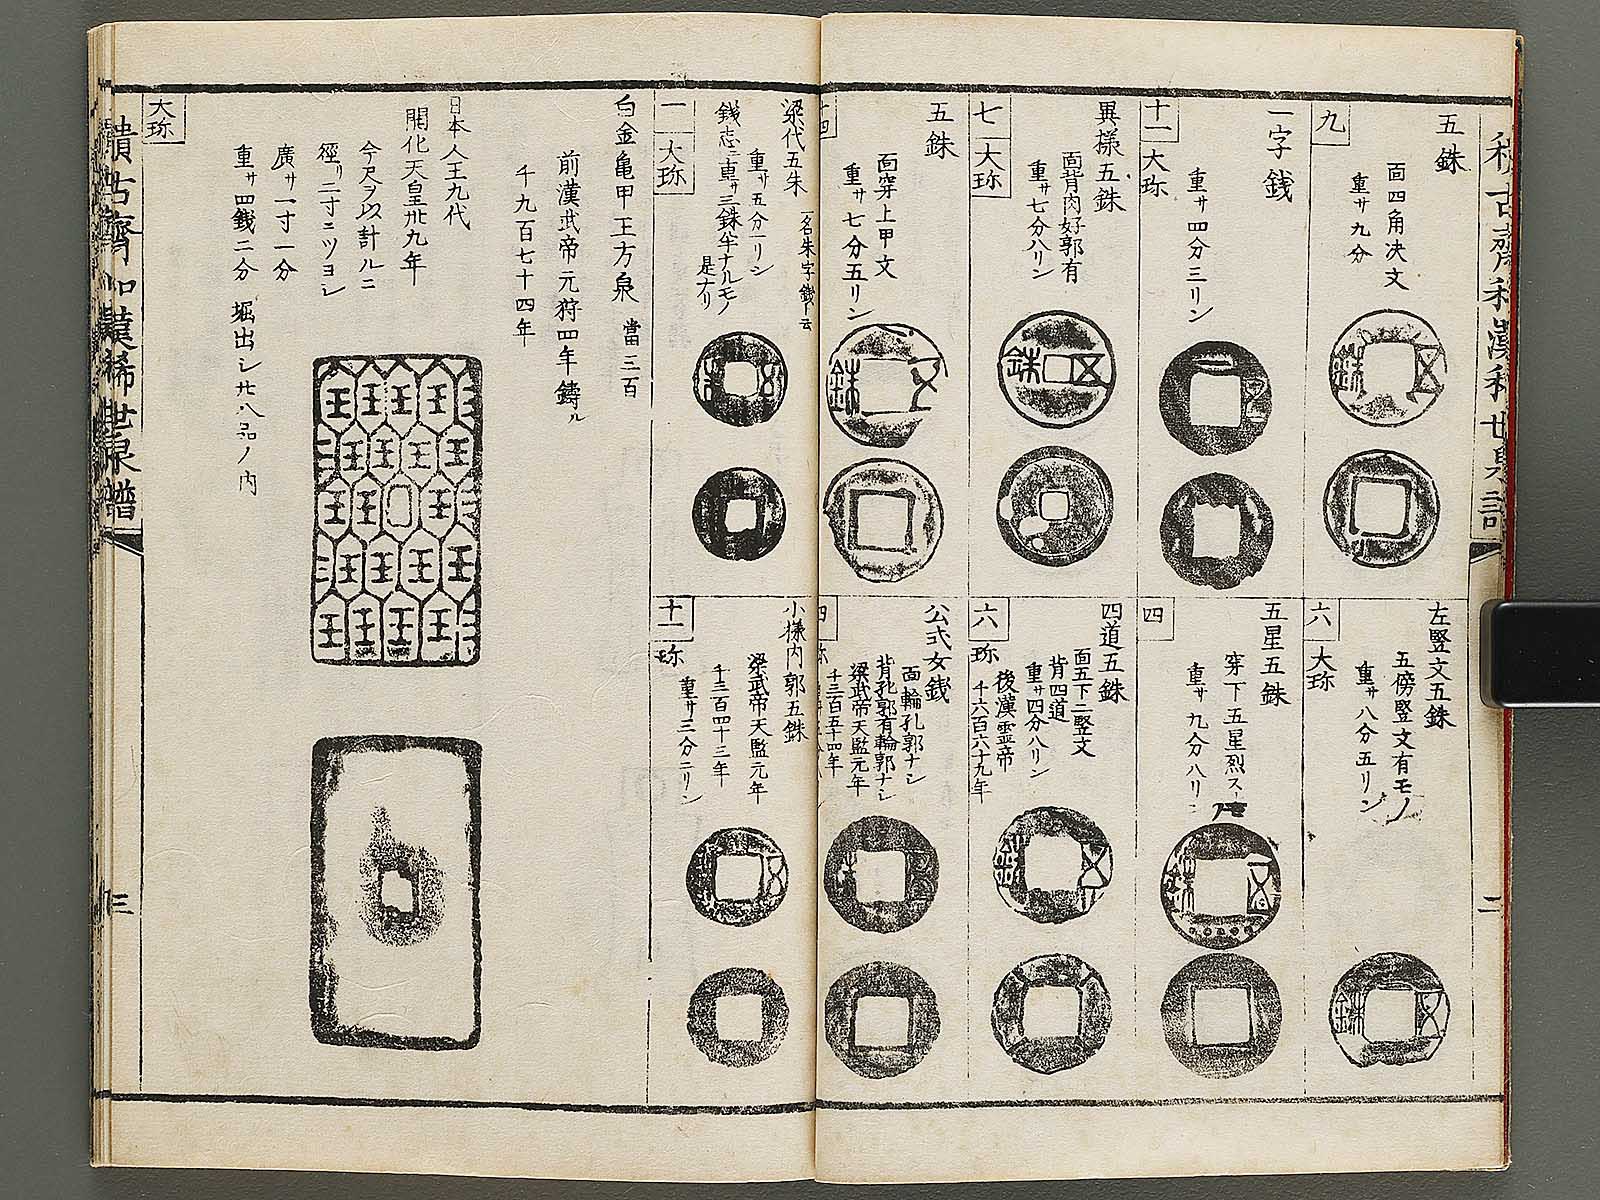 五銖
面四角决文
重サ九分
九
一字銭
重サ四分三リン
十一
大珎
異様五銖
面背肉好郭有
重サ七分八リン
七
大珎
五銖
面穿上甲文
重サ七分五リン
四
左竪文五銖
五傍竪文有モノ
重サ八分五リン
六
大珎
五星五銖
穿下五星烈ス
重サ九分八リン
四
四道五銖
面五下二竪文
背四道
重サ四分八リン
後漢霊帝
千六百六十九年
六
珎
公式女銭
面輪孔郭ナシ
背孔郭有輪郭ナシ
梁武帝天監元年
千三百五十四年
四
梁代五朱
一名朱字銭ト云
重サ五分一リン
銭志ニ重サ三銖半ナルモノ
是ナリ
一
大珎
小様内郭五銖
梁武帝天監元年
千三百四十三年
重サ三分二リン
十一
珎
白金亀甲王方泉 當三百
前漢武帝元狩四年鑄ル
千九百七十四年
日本人王九代
開化天皇卅九年
今尺ヲ以計ルニ
徑リ二寸ニツヨシ
廣サ一寸一分
重サ四銭二分 堀出シ廿八品ノ内
大珎
積古齋和漢稀世泉譜
三
二